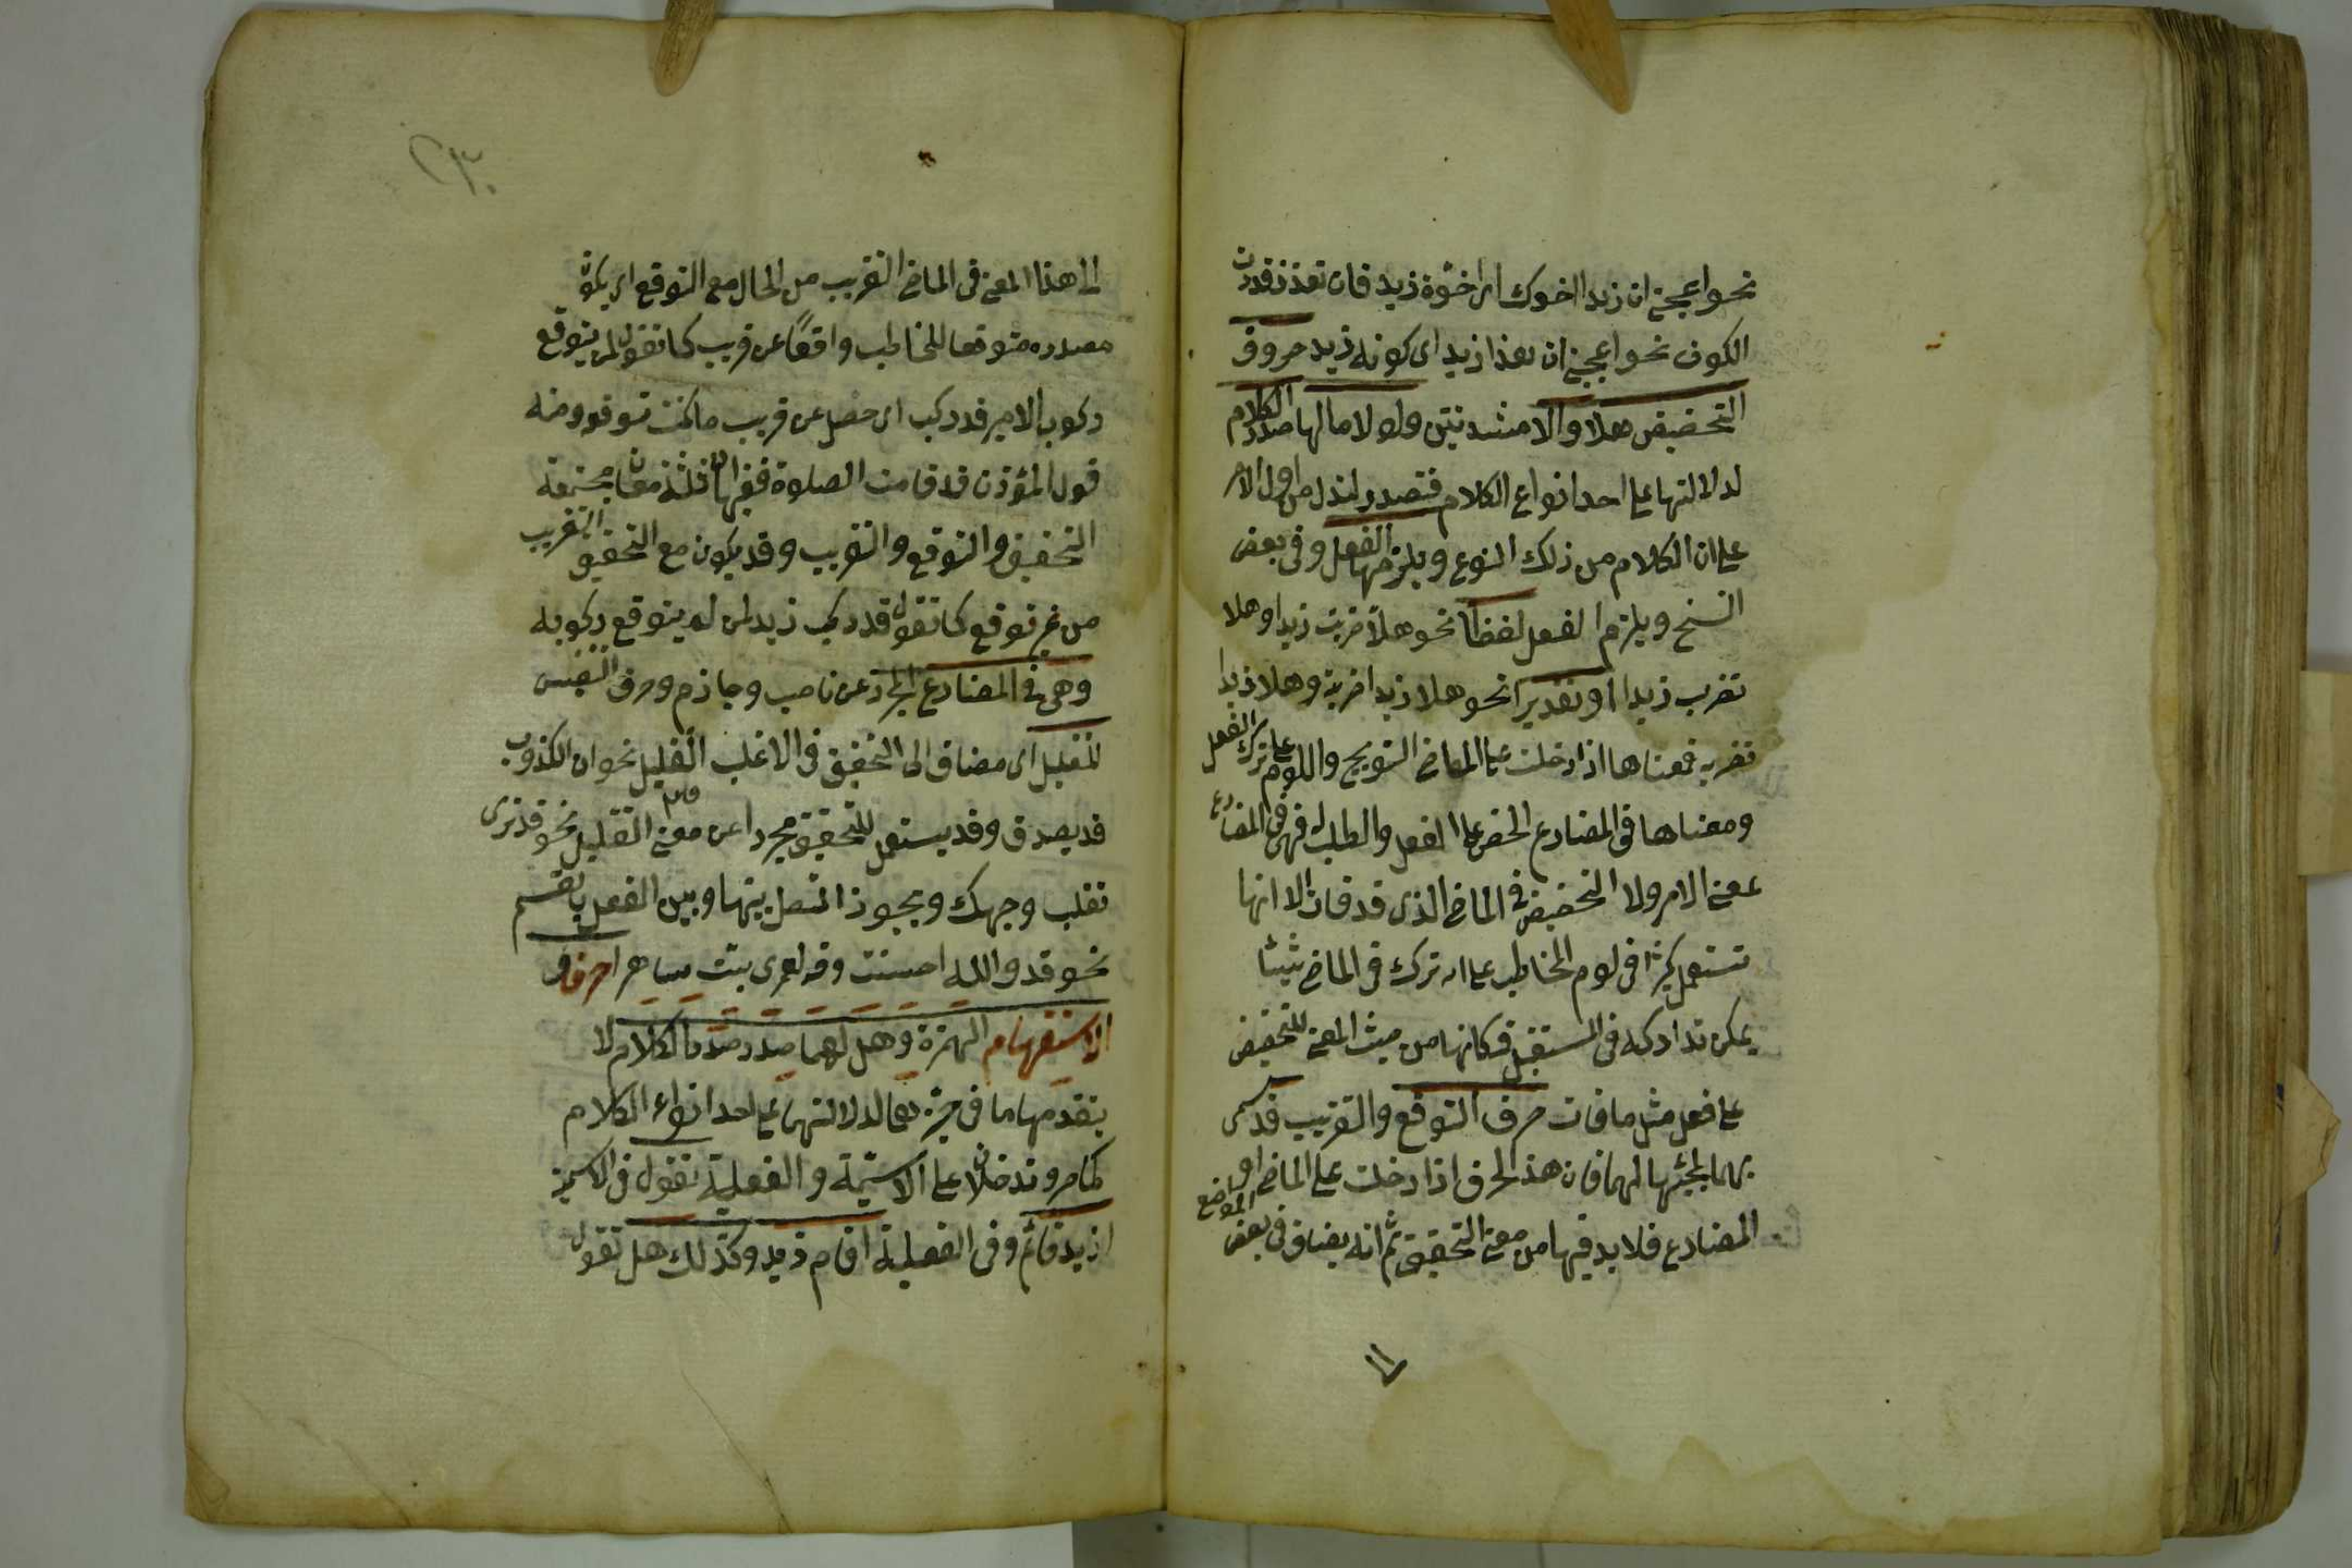 نحو اعجبنى ان زيدا اخوك اى اخوة زيد فان تعذر قدرت
الكون نحو اعجبنى ان هذا زيد اى كونه زيد حروف
التحضيض هلا والا مشددتين ولولا ولوما لها صدر الكلام
لدلالتها على احد انواع الكلام فتصدر لتدل من اول الامر
على ان الكلام من ذلك النوع ويلزمها الفعل وفى بعض
النسخ ويلزم الفعل لفظا نحو هلا ضربت زيدا وهلا
تضرب زيدا او تقديرا نحو هلا زيدا ضربته وهلا زيدا
تضربه فمعناها اذا دخلت على الماضى التوبيخ واللوم على ترك الفعل
ومعناها فى المضارع الحض على الفعل والطلب له فهى فى المضارع
بمعنى الامر ولا التحضيض فى الماضى الذى قد فات الا انها
تستعمل كثيرا فى لوم المخاطب على انه ترك فى الماضى شيئا
يمكن تداركه فى المستقبل فكانها من حيث المعنى للتحضيض
على فعل مثل ما فات حرف التوقع والتقريب قد سمى
بهما لمجيئها لهما فان هذا الحرف اذا دخلت على الماضى او
المضارع فلا بد فيها من معنى التحقيق ثم انه يضاف فى بعض المواضع
الى هذا المعنى فى الماضى التقريب من الحال مع التوقع اى يكون
مصدره متوقعا للمخاطب واقعا عن قريب كما تقول لمن يتوقع
ركوب الامير قد ركب اى حصل عن قريب ما كنت تتوقعه ومنه
قول المؤذن قد قامت الصلوة ففيها اذن ثلثة معان مجتمعة
التحقيق والتوقع والتقريب وقد يكون مع التحقيق التقريب
من غير توقع كما تقول قد ركب زيد لمن لم يتوقع ركوبه
وهى فى المضارع المجرد عن ناصب وجازم وحرف التنفيس
للتقليل اى مضاف الى التحقيق فى الاغلب التقليل نحو ان الكذوب
قد يصدق وقد يستعمل للتحقيق مجردا عن معنى التقليل نحو قد نرى
تقلب وجهك ويجوز الفصل بينها وبين الفعل بالقسم
نحو قد والله احسنت وقد لعمرى بت ساهرا حرفا
الاستفهام الهمزة وهل لهما صدر الكلام لا
يتقدمها ما فى حيزهما لدلالتهما على احد انواع الكلام
كما مر وتدخلان على الاسمية والفعلية تقول فى الاسمية
ازيد قائم وفى الفعلية اقام زيد وكذلك هل تقول